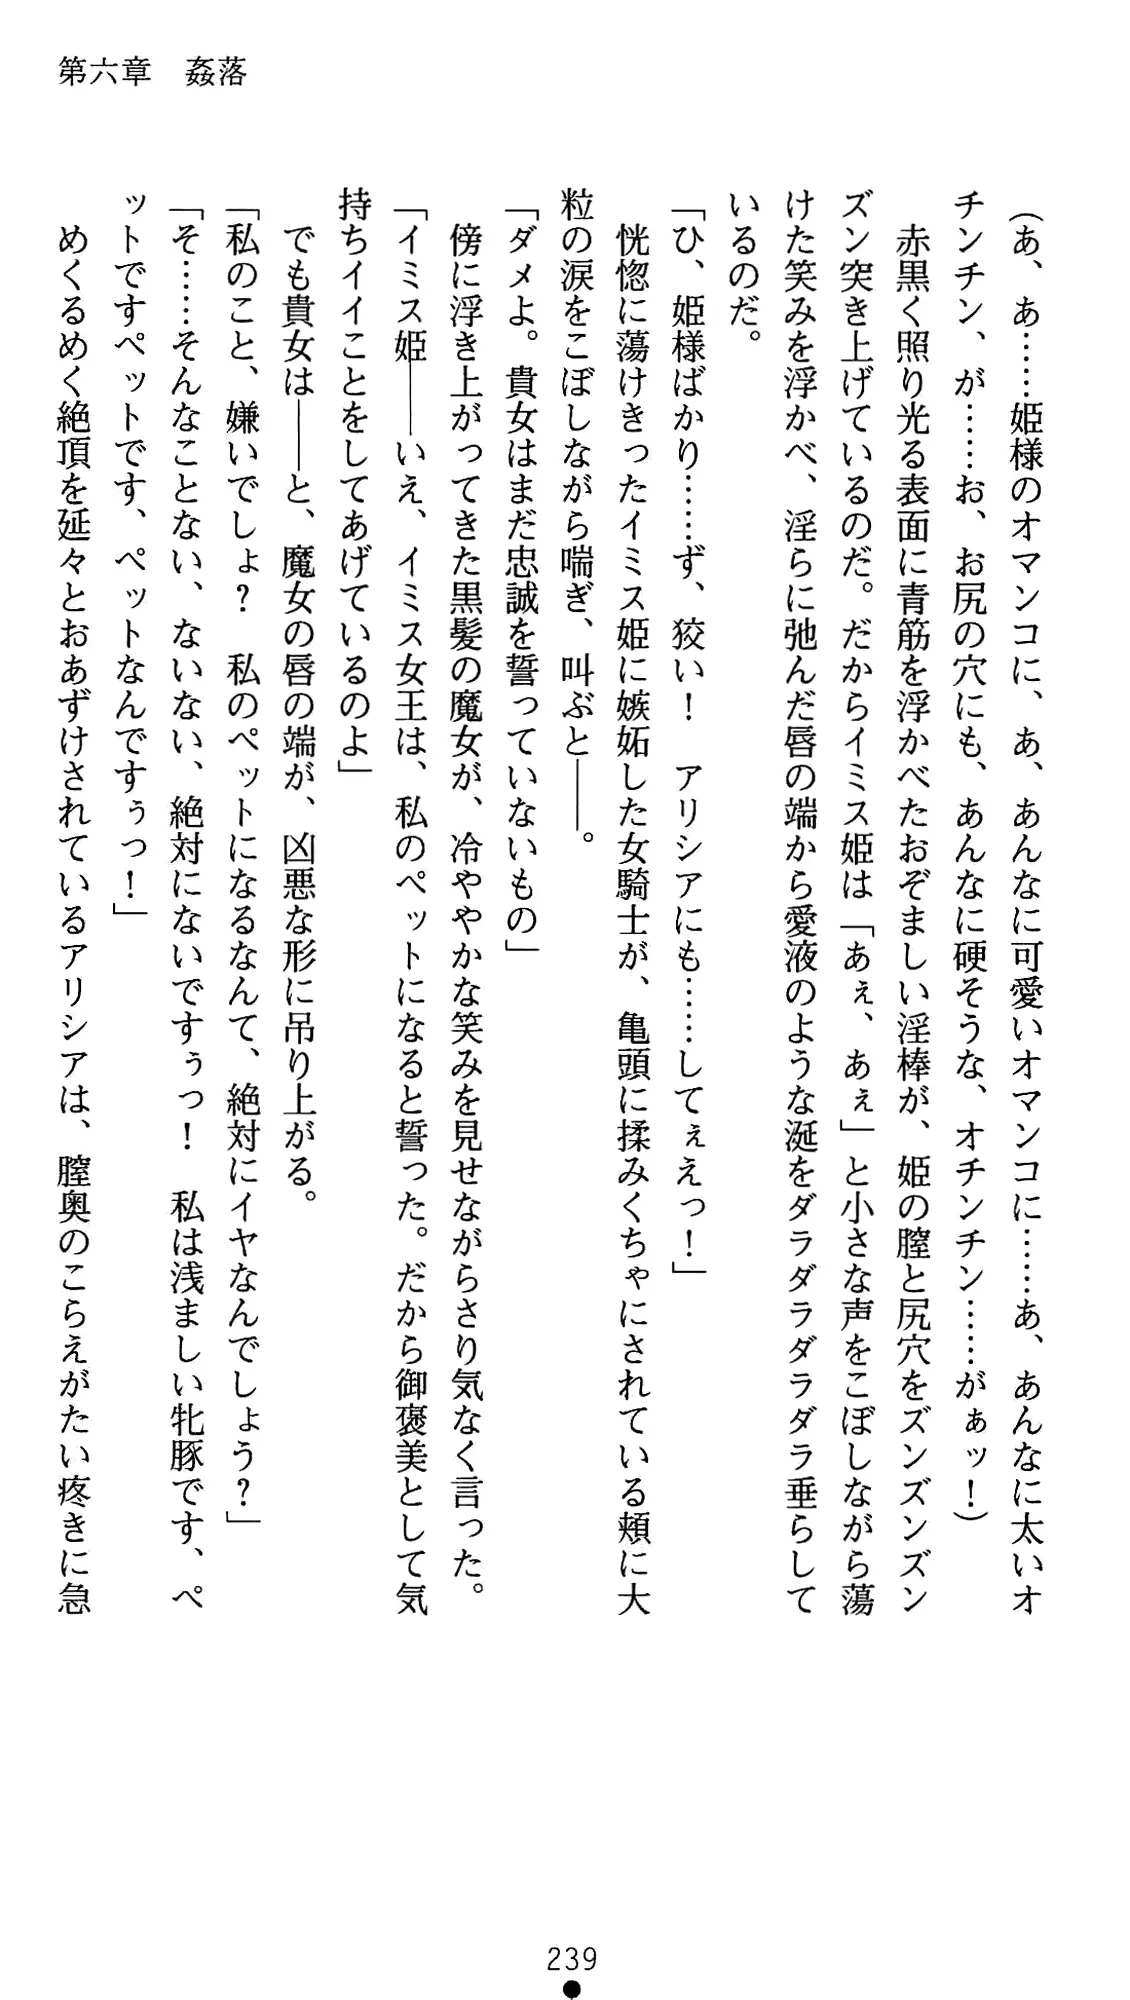 第六章　姦落
（あ、あ……姫様のオマンコに、あ、あんなに可愛いオマンコに……あ、あんなに太いオ
チンチン、が……お、お尻の穴にも、あんなに硬そうな、オチンチン……がぁッ！）
　赤黒く照り光る表面に青筋を浮かべたおぞましい淫棒が、姫の膣と尻穴をズンズンズン
ズン突き上げているのだ。だからイミス姫は「あぇ、あぇ」と小さな声をこぼしながら蕩
けた笑みを浮かべ、淫らに弛んだ唇の端から愛液のような涎をダラダラダラダラ垂らして
いるのだ。
「ひ、姫様ばかり……ず、狡い！　アリシアにも……してぇえっ！」
　恍惚に蕩けきったイミス姫に嫉妬した女騎士が、亀頭に揉みくちゃにされている頬に大
粒の涙をこぼしながら喘ぎ、叫ぶと――。
「ダメよ。貴女はまだ忠誠を誓っていないもの」
　傍に浮き上がってきた黒髪の魔女が、冷ややかな笑みを見せながらさり気なく言った。
「イミス姫――いえ、イミス女王は、私のペットになると誓った。だから御褒美として気
持ちイイことをしてあげているのよ」
　でも貴女は――と、魔女の唇の端が、凶悪な形に吊り上がる。
「私のこと、嫌いでしょ？　私のペットになるなんて、絶対にイヤなんでしょう？」
「そ……そんなことない、ないない、絶対にないですぅっ！　私は浅ましい牝豚です、ペ
ットですペットです、ペットなんですぅっ！」
　めくるめく絶頂を延々とおあずけされているアリシアは、膣奥のこらえがたい疼きに急
239